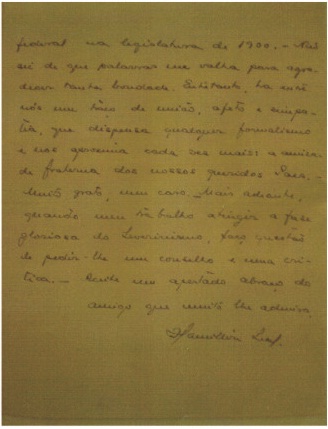 federal na legislatura de 1900. — Não
sei de que palavras me valha para agra-
decer tanta bondade. Entretanto, ha entre
nós um laço de união, afeto e simpa-
tia, que dispensa qualquer formalismo
e nos aproxima cada vez mais: a amiza-
de fraterna dos nossos queridos Pais. —
Muito grato, meu caro. Mais adiante,
quando meu trabalho atingir a fase
gloriosa do Severinismo, faço questão
de pedir-lhe um conselho e uma crí-
tica. — Receba um apertado abraço do
amigo que muito lhe admira,
Hamilton